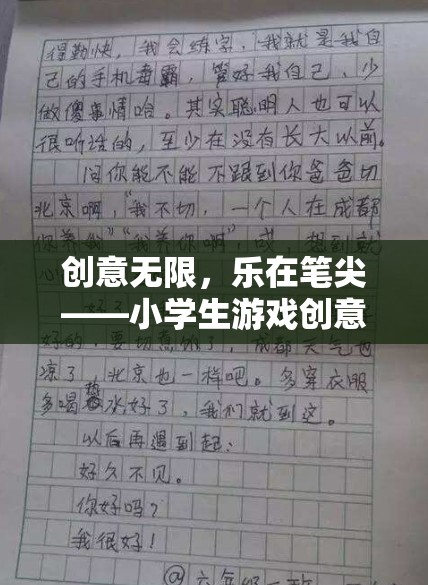 得勤快，我会练字，我就是我自
己的手机毒霸，管好我自己，少
做傻事情哈。其实聪明人也可以
很听话的，至少在没有长大以前。
问你能不能不跟到你爸爸切
北京啊，“我不切，一个人在成都
你养我”“我养你啊”哎，想到就
创意无限，乐在笔尖
——小学生游戏创意
好的，要切想你了，成都天气也
凉了，北京也一样吧。多穿衣服
多喝热水好了，我们就到这。
以后再遇到起：
好久不见。
你好吗？
我很好！
@六年级一班